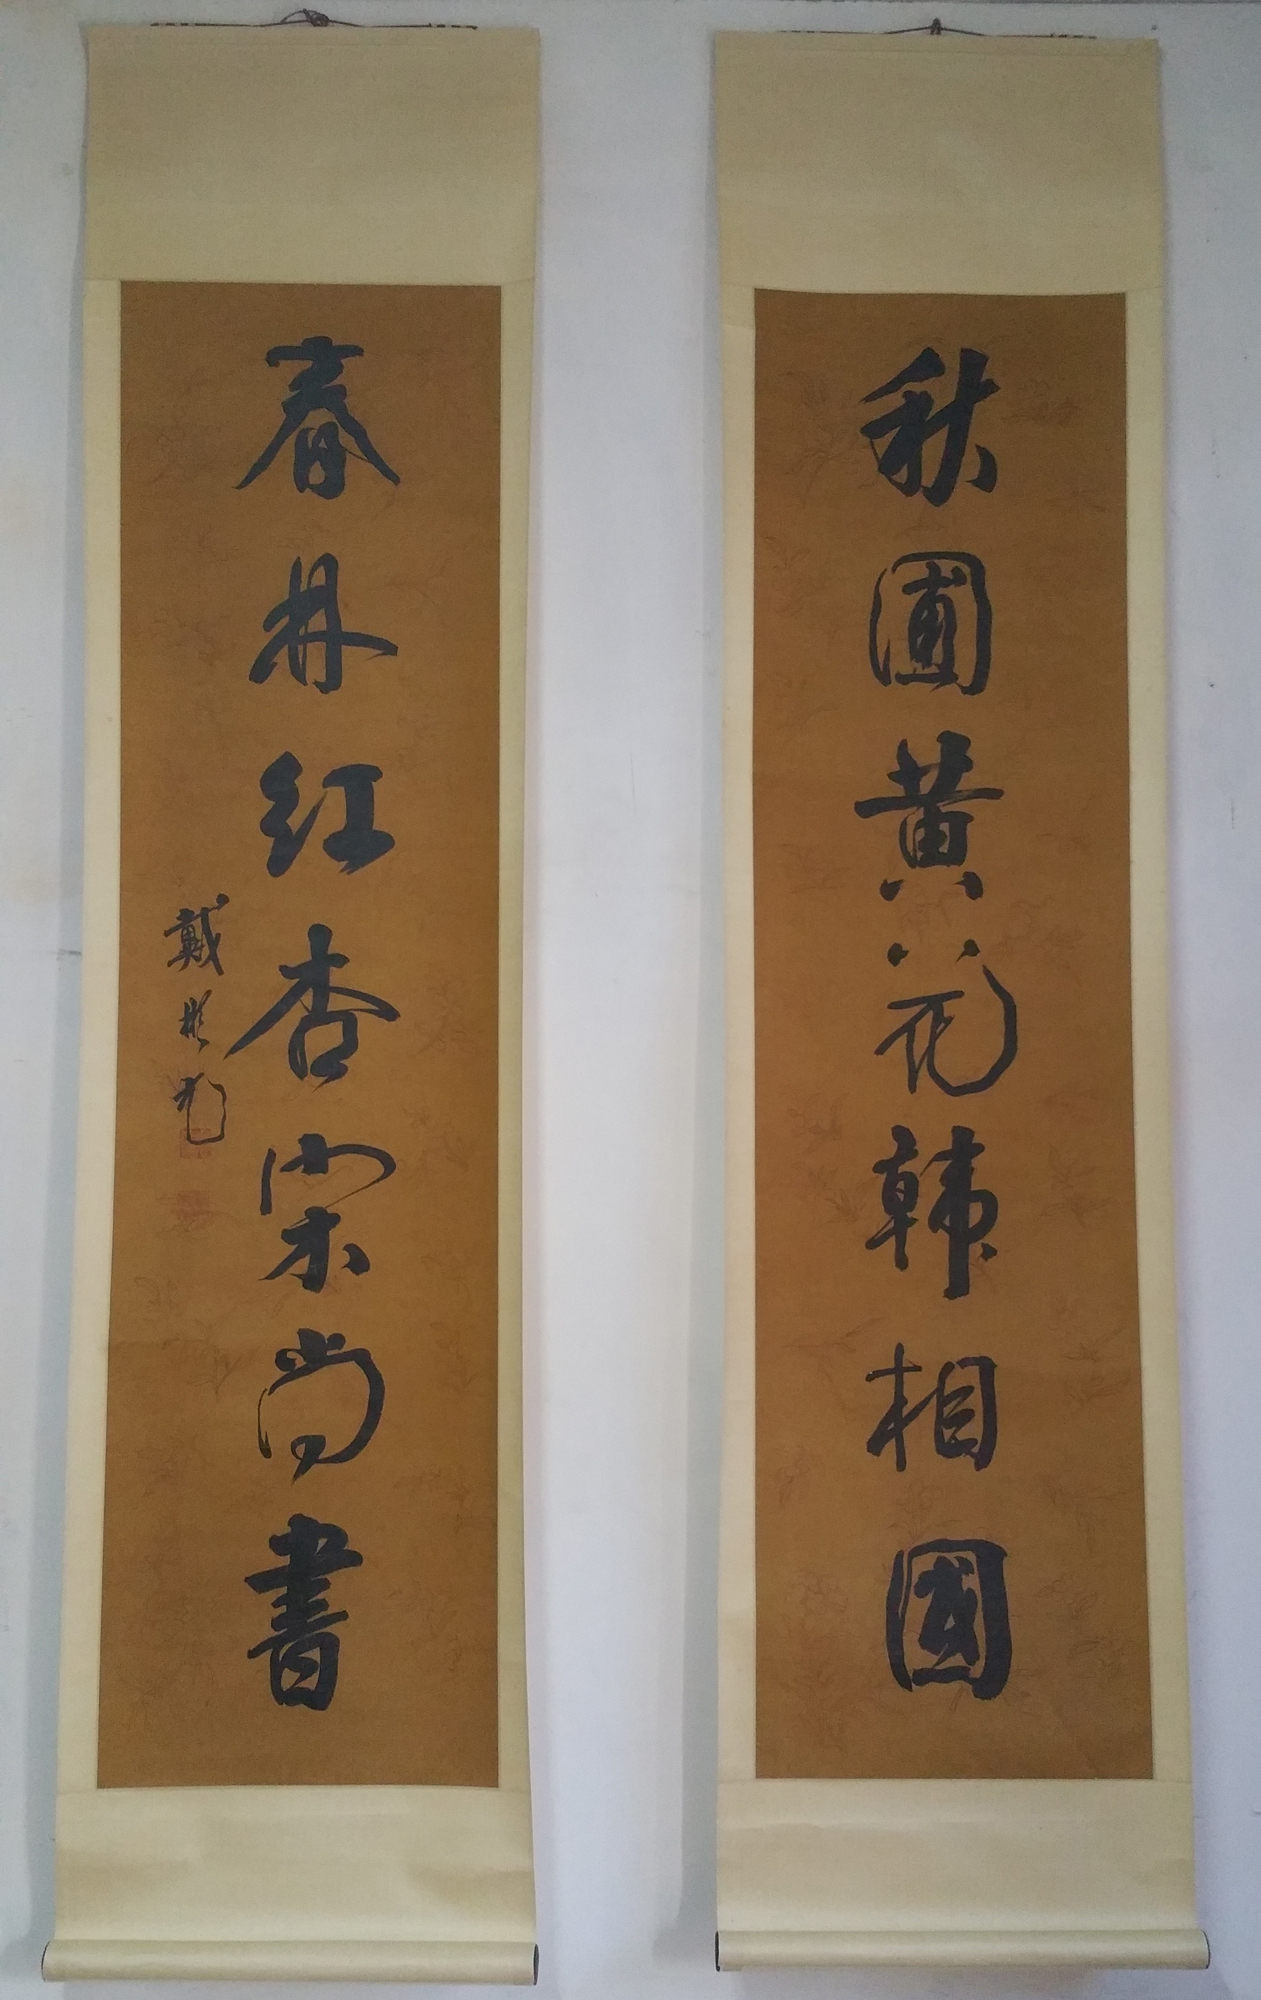 秋圃黄花韩相國
春林红杏宋尚書
戴彬元